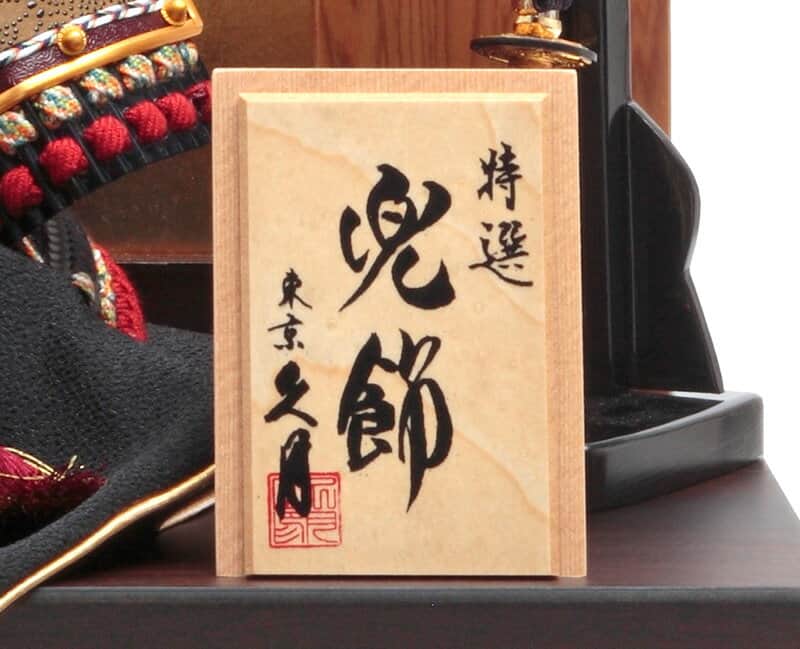 特選
兜飾
東京久月